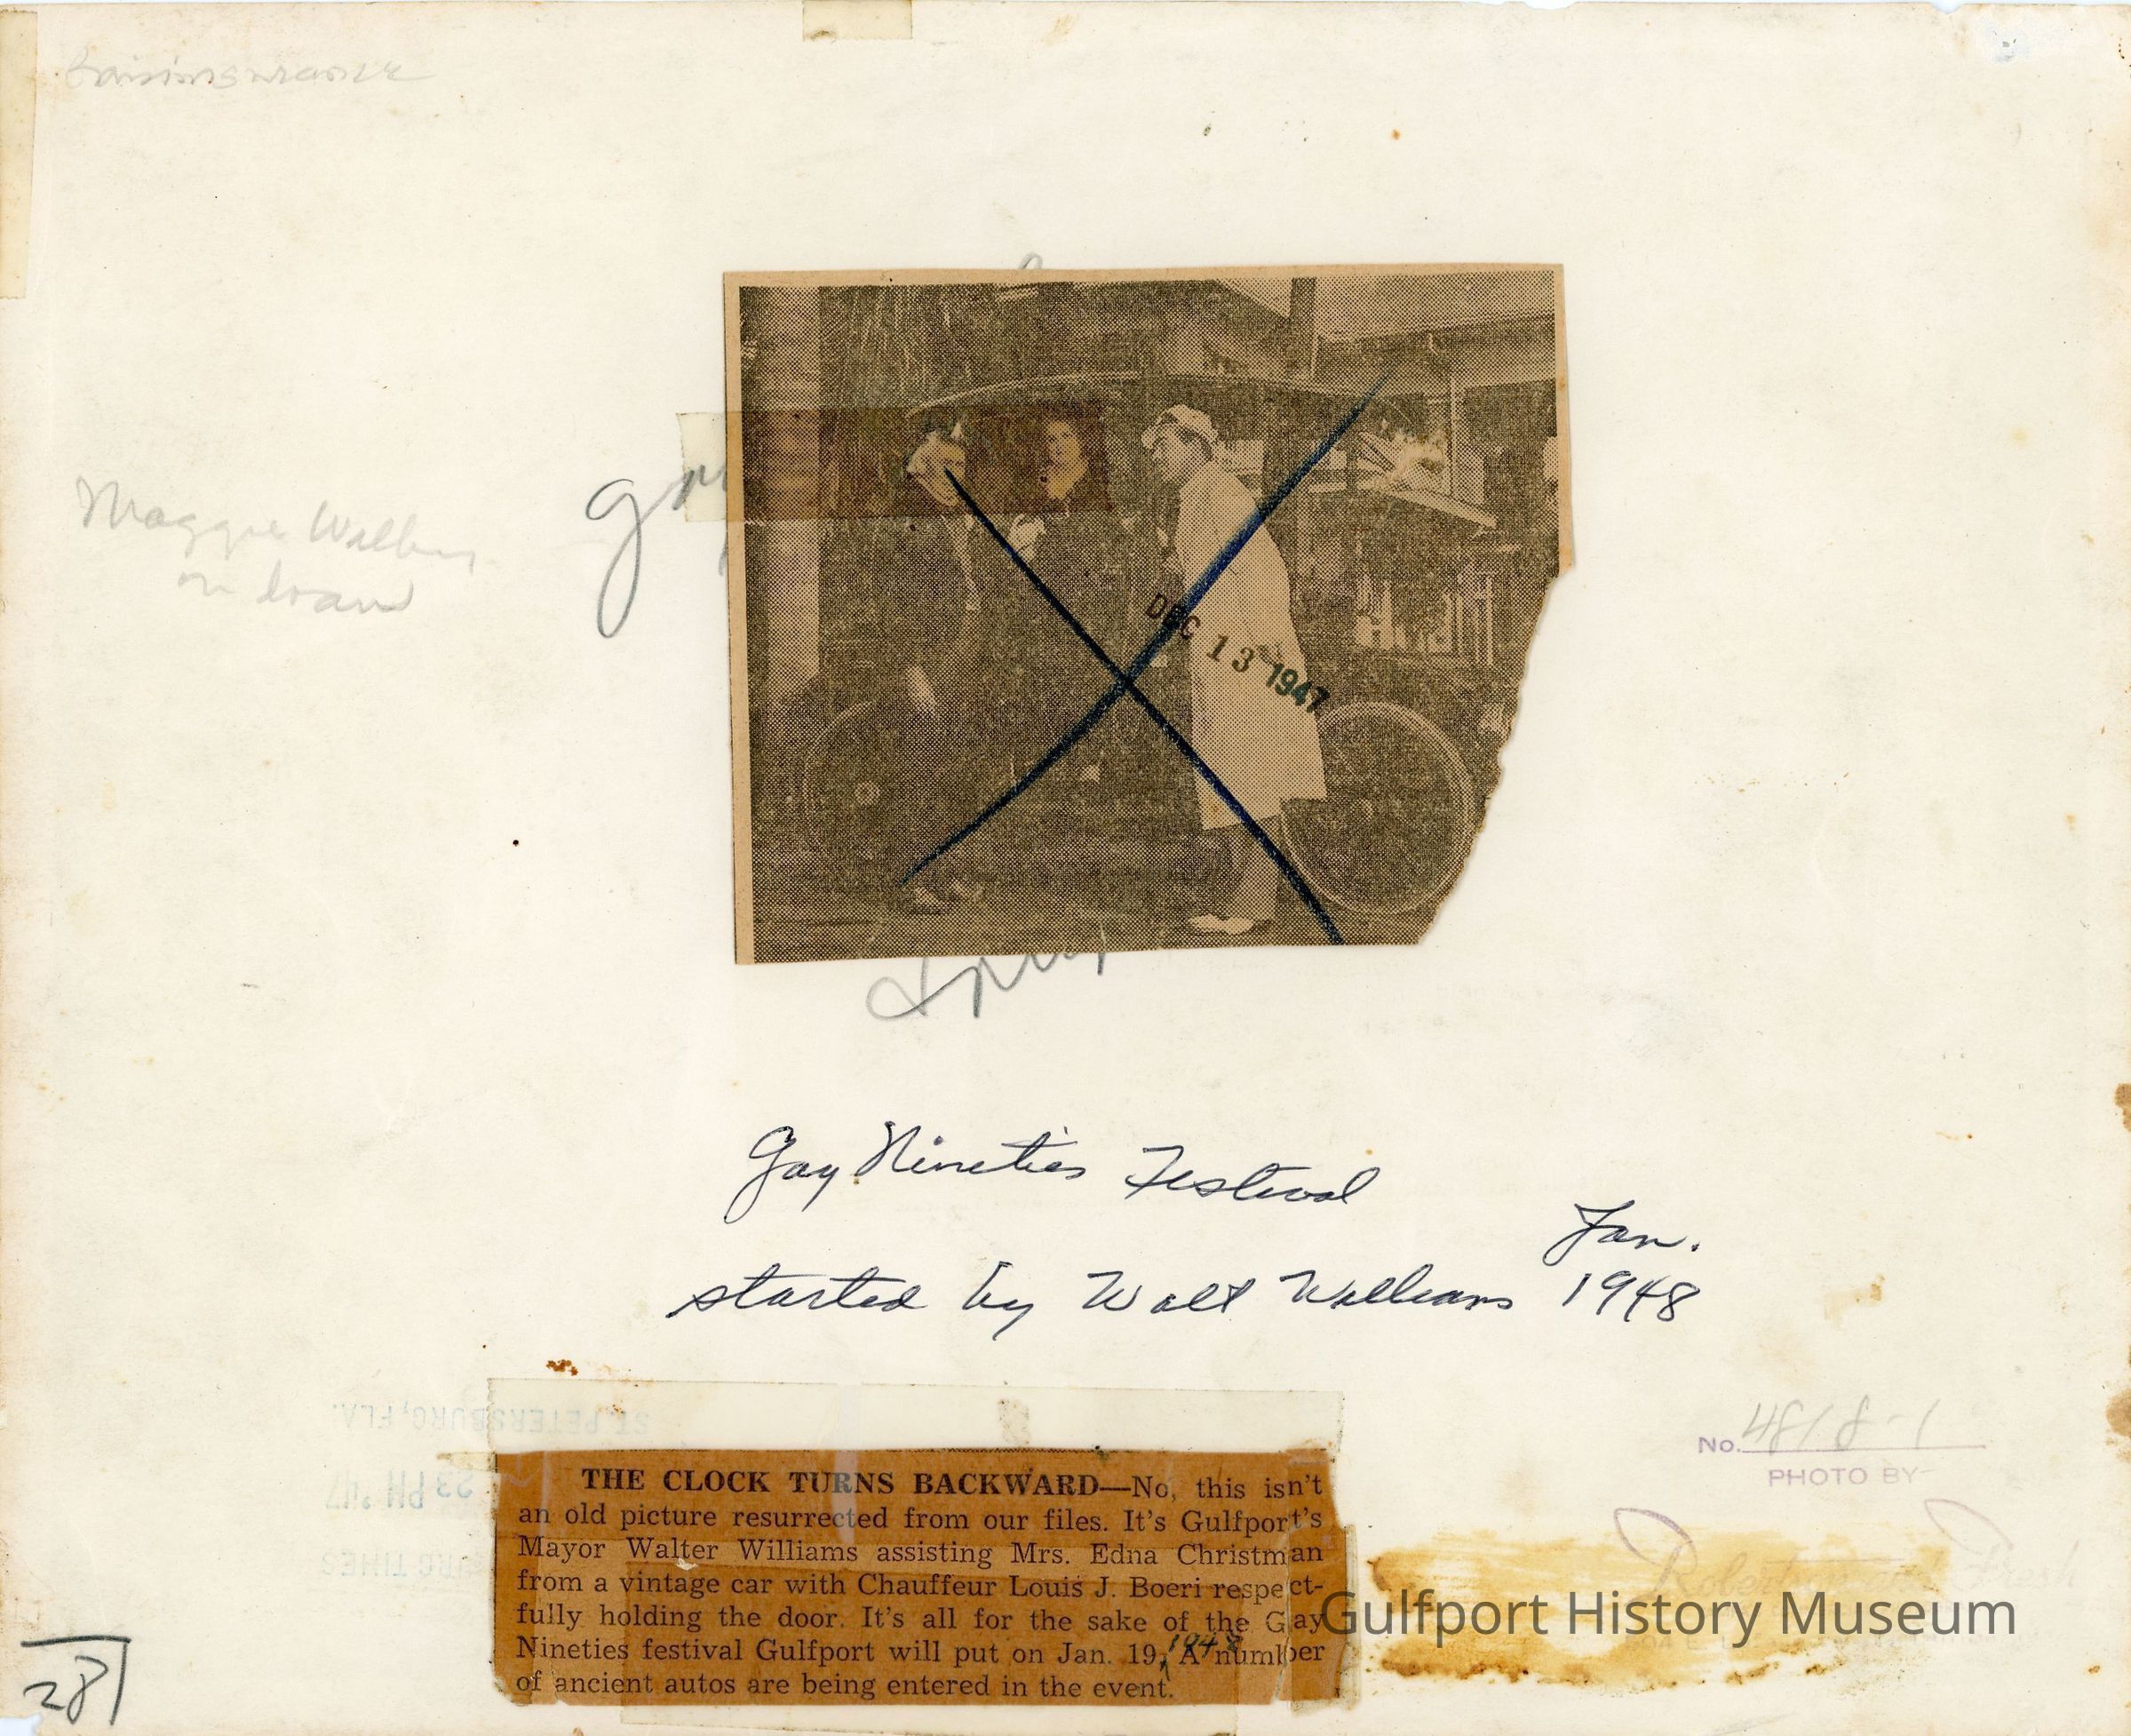 Maggie Wilburn
on loan
DEC 13 1947
Gay Nineties Festival
Jan.
started by Walt Williams 1948
ST. PETERSBURG, FLA.
23 PM '47
TIMES
No. 4818-1
PHOTO BY
THE CLOCK TURNS BACKWARD—No, this isn't
an old picture resurrected from our files. It's Gulfport's
Mayor Walter Williams assisting Mrs. Edna Christman
from a vintage car with Chauffeur Louis J. Boeri respect-
fully holding the door. It's all for the sake of the Gay
Nineties festival Gulfport will put on Jan. 19, 1948 A number
of ancient autos are being entered in the event.
Gulfport History Museum
281